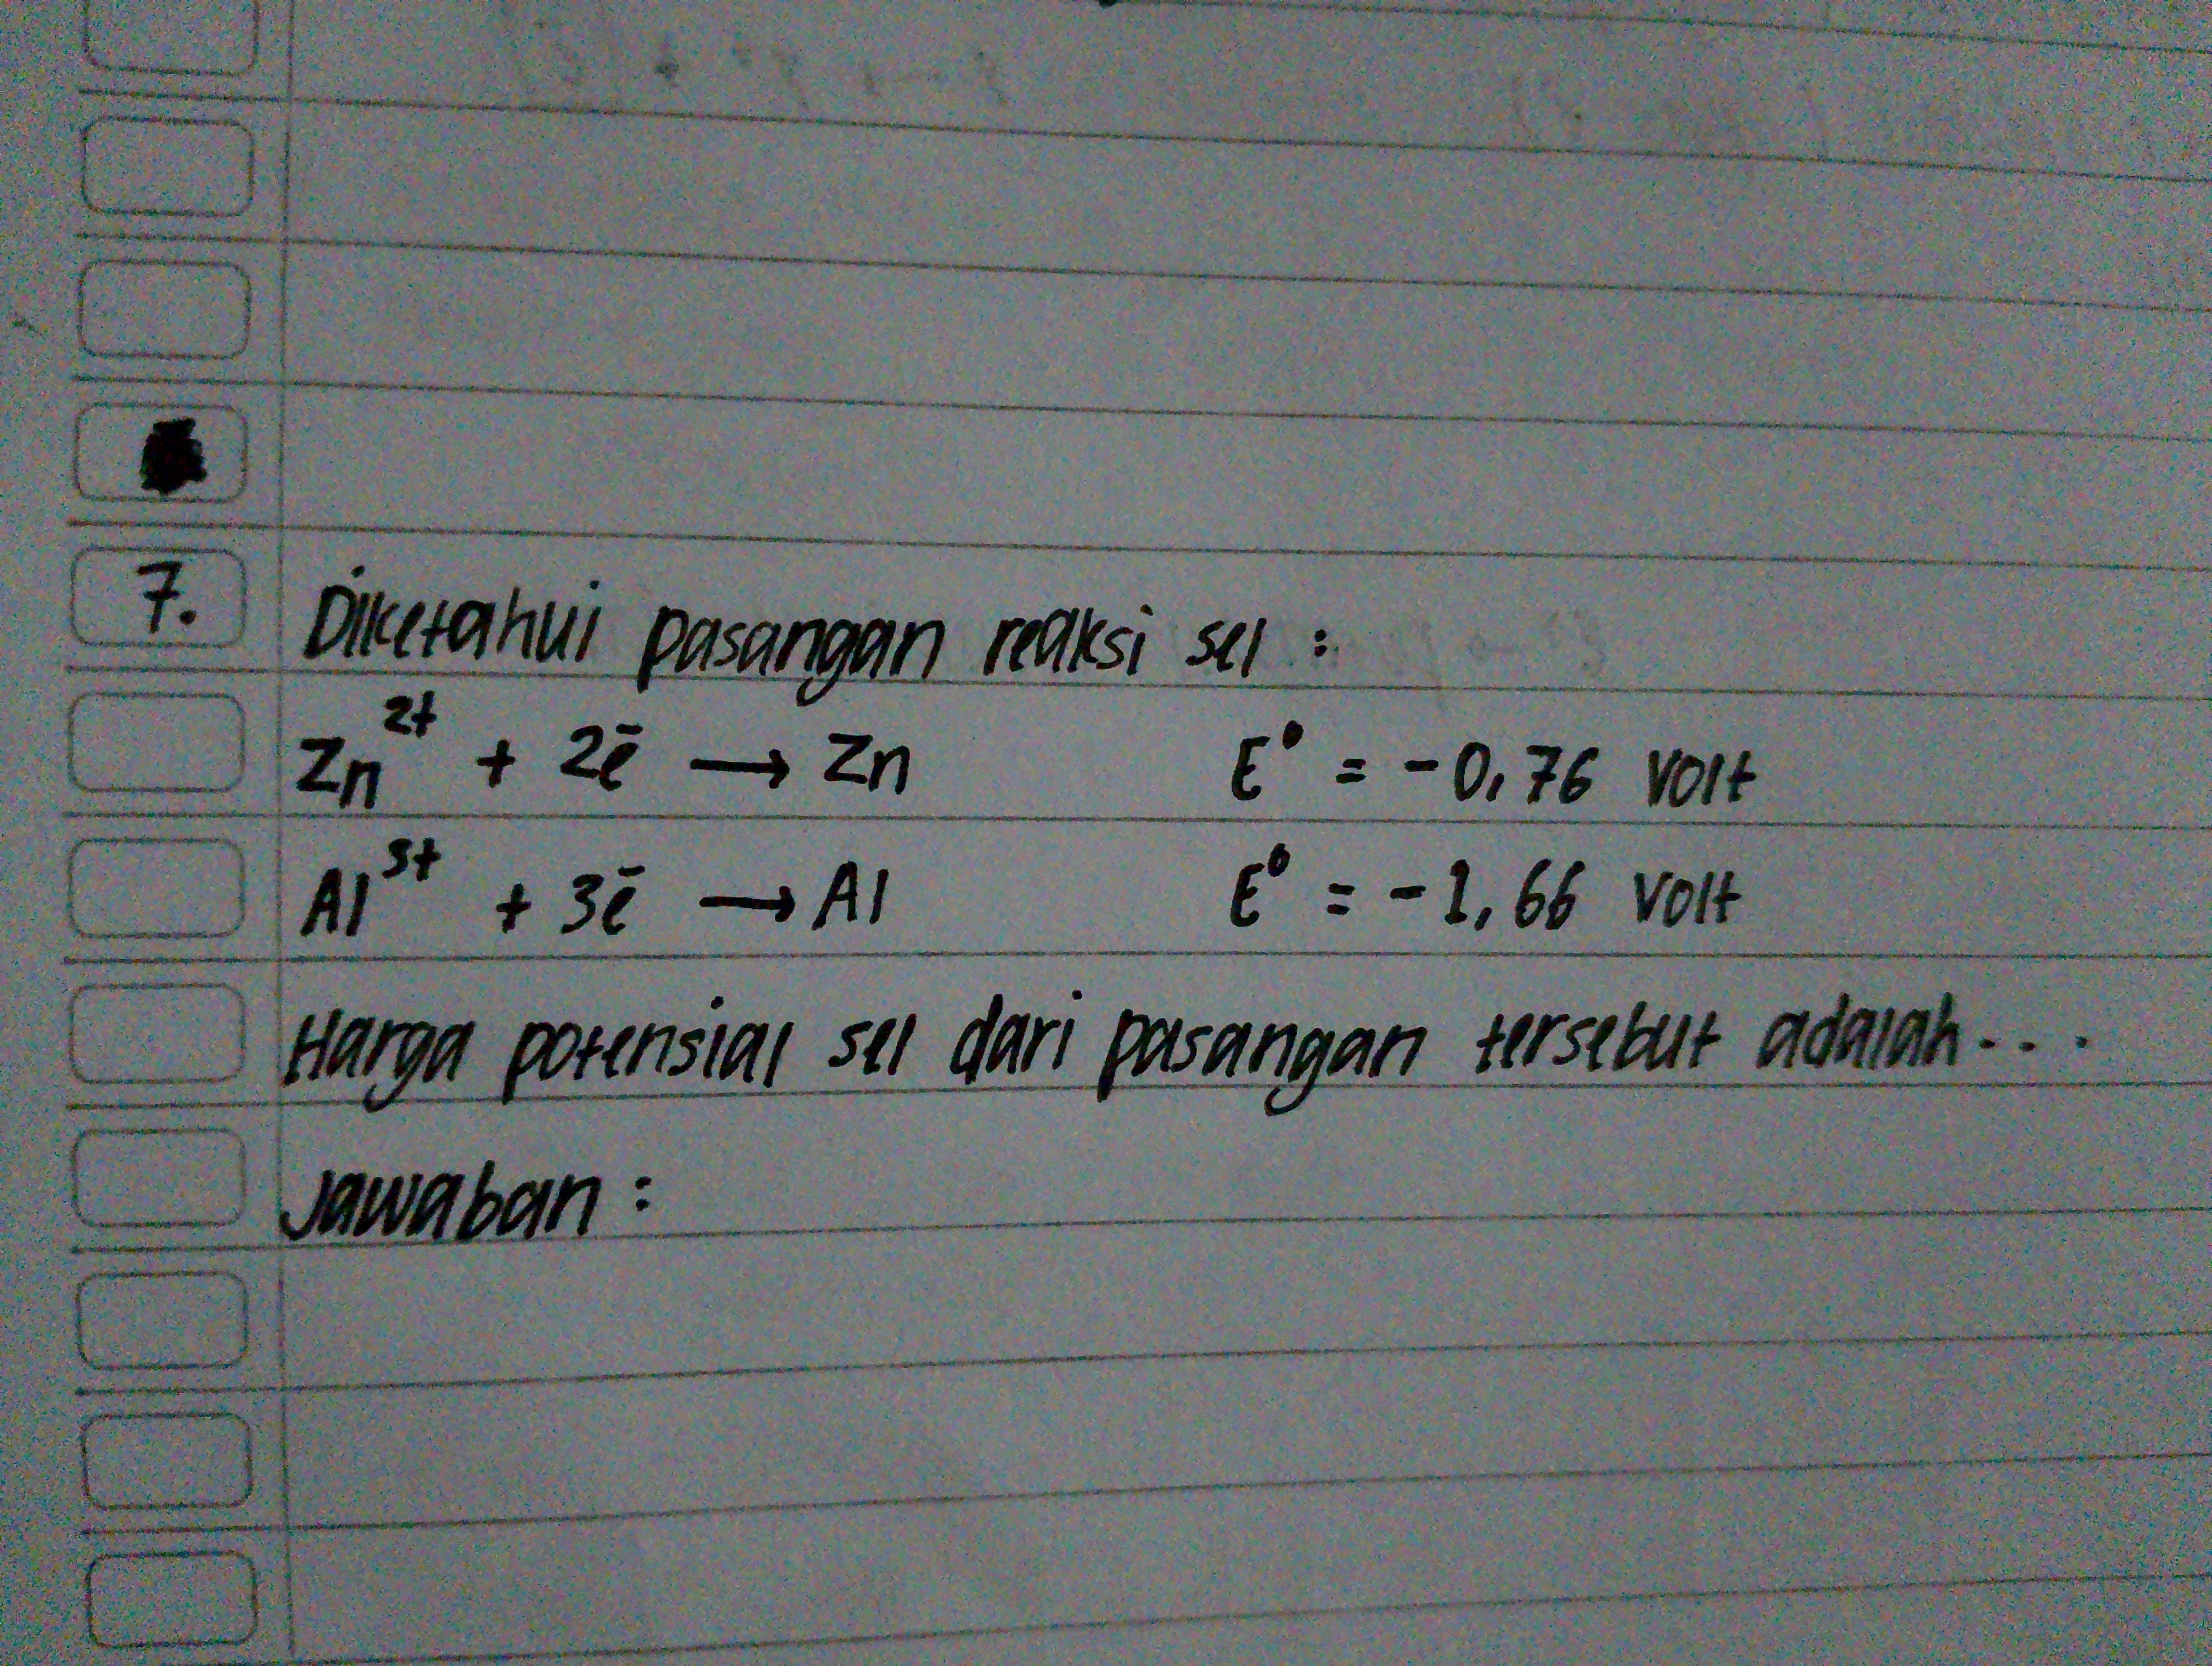 7. Diketahui pasangan reaksi sel :
Zn²⁺ + 2ē → Zn E° = -0,76 Volt
Al³⁺ + 3ē → Al E° = -1,66 Volt
Harga potensial sel dari pasangan tersebut adalah...
Jawaban :